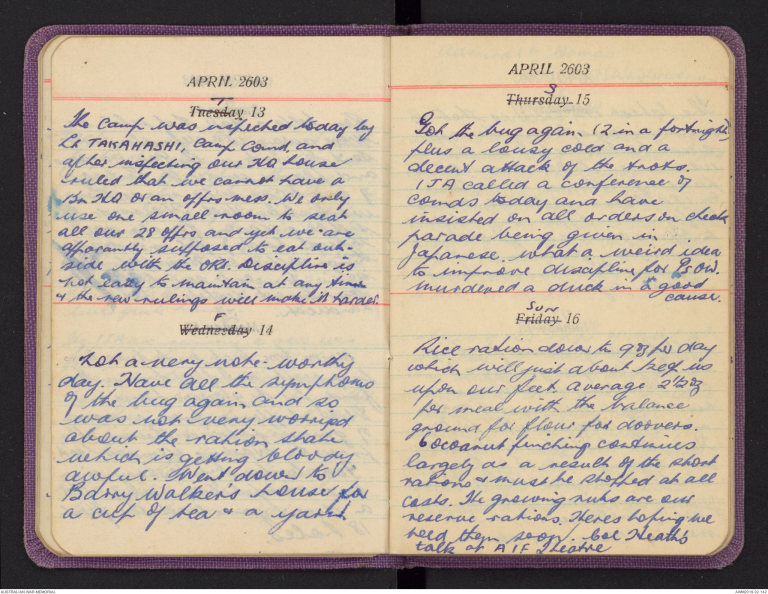 APRIL 2603
T
Tuesday 13
The Camp was inspected today by
Lt TAKAHASHI, Camp Comd, and
after inspecting our HQ house
ruled that we cannot have a
Bn HQ or an offrs mess. We only
use one small room to seat
all our 28 offrs and yet we are
apparently supposed to eat out-
side with the ORs. Discipline is
not easy to maintain at any time
& the new rulings will make it harder.
F
Wednesday 14
Not a very note-worthy
day. Have all the symphoms
of the bug again and so
was not very worried
about the ration state
which is getting bloody
awful. Went down to
Barry Walker's house for
a cup of tea & a yarn.
APRIL 2603
S
Thursday 15
Got the bug again (2 in a fortnight)
plus a lousy cold and a
decent attack of the trots.
IJA called a conference of
comds today and have
insisted on all orders on check
parade being given in
Japanese. what a weird idea
to improve discipline for P.O.W.
Murdered a duck in a good
cause.
Sun
Friday 16
Rice ration down to 9 oz per day
which will just about keep us
upon our feet average 2½ oz
per meal with the balance
ground for flour for doovers.
Cocoanut pinching continues
largely as a result of the short
rations & must be stopped at all
costs. The growing nuts are our
reserve rations. Heres hoping we
need them soon. Col Heath's
talk at AIF Theatre
AUSTRALIAN WAR MEMORIAL